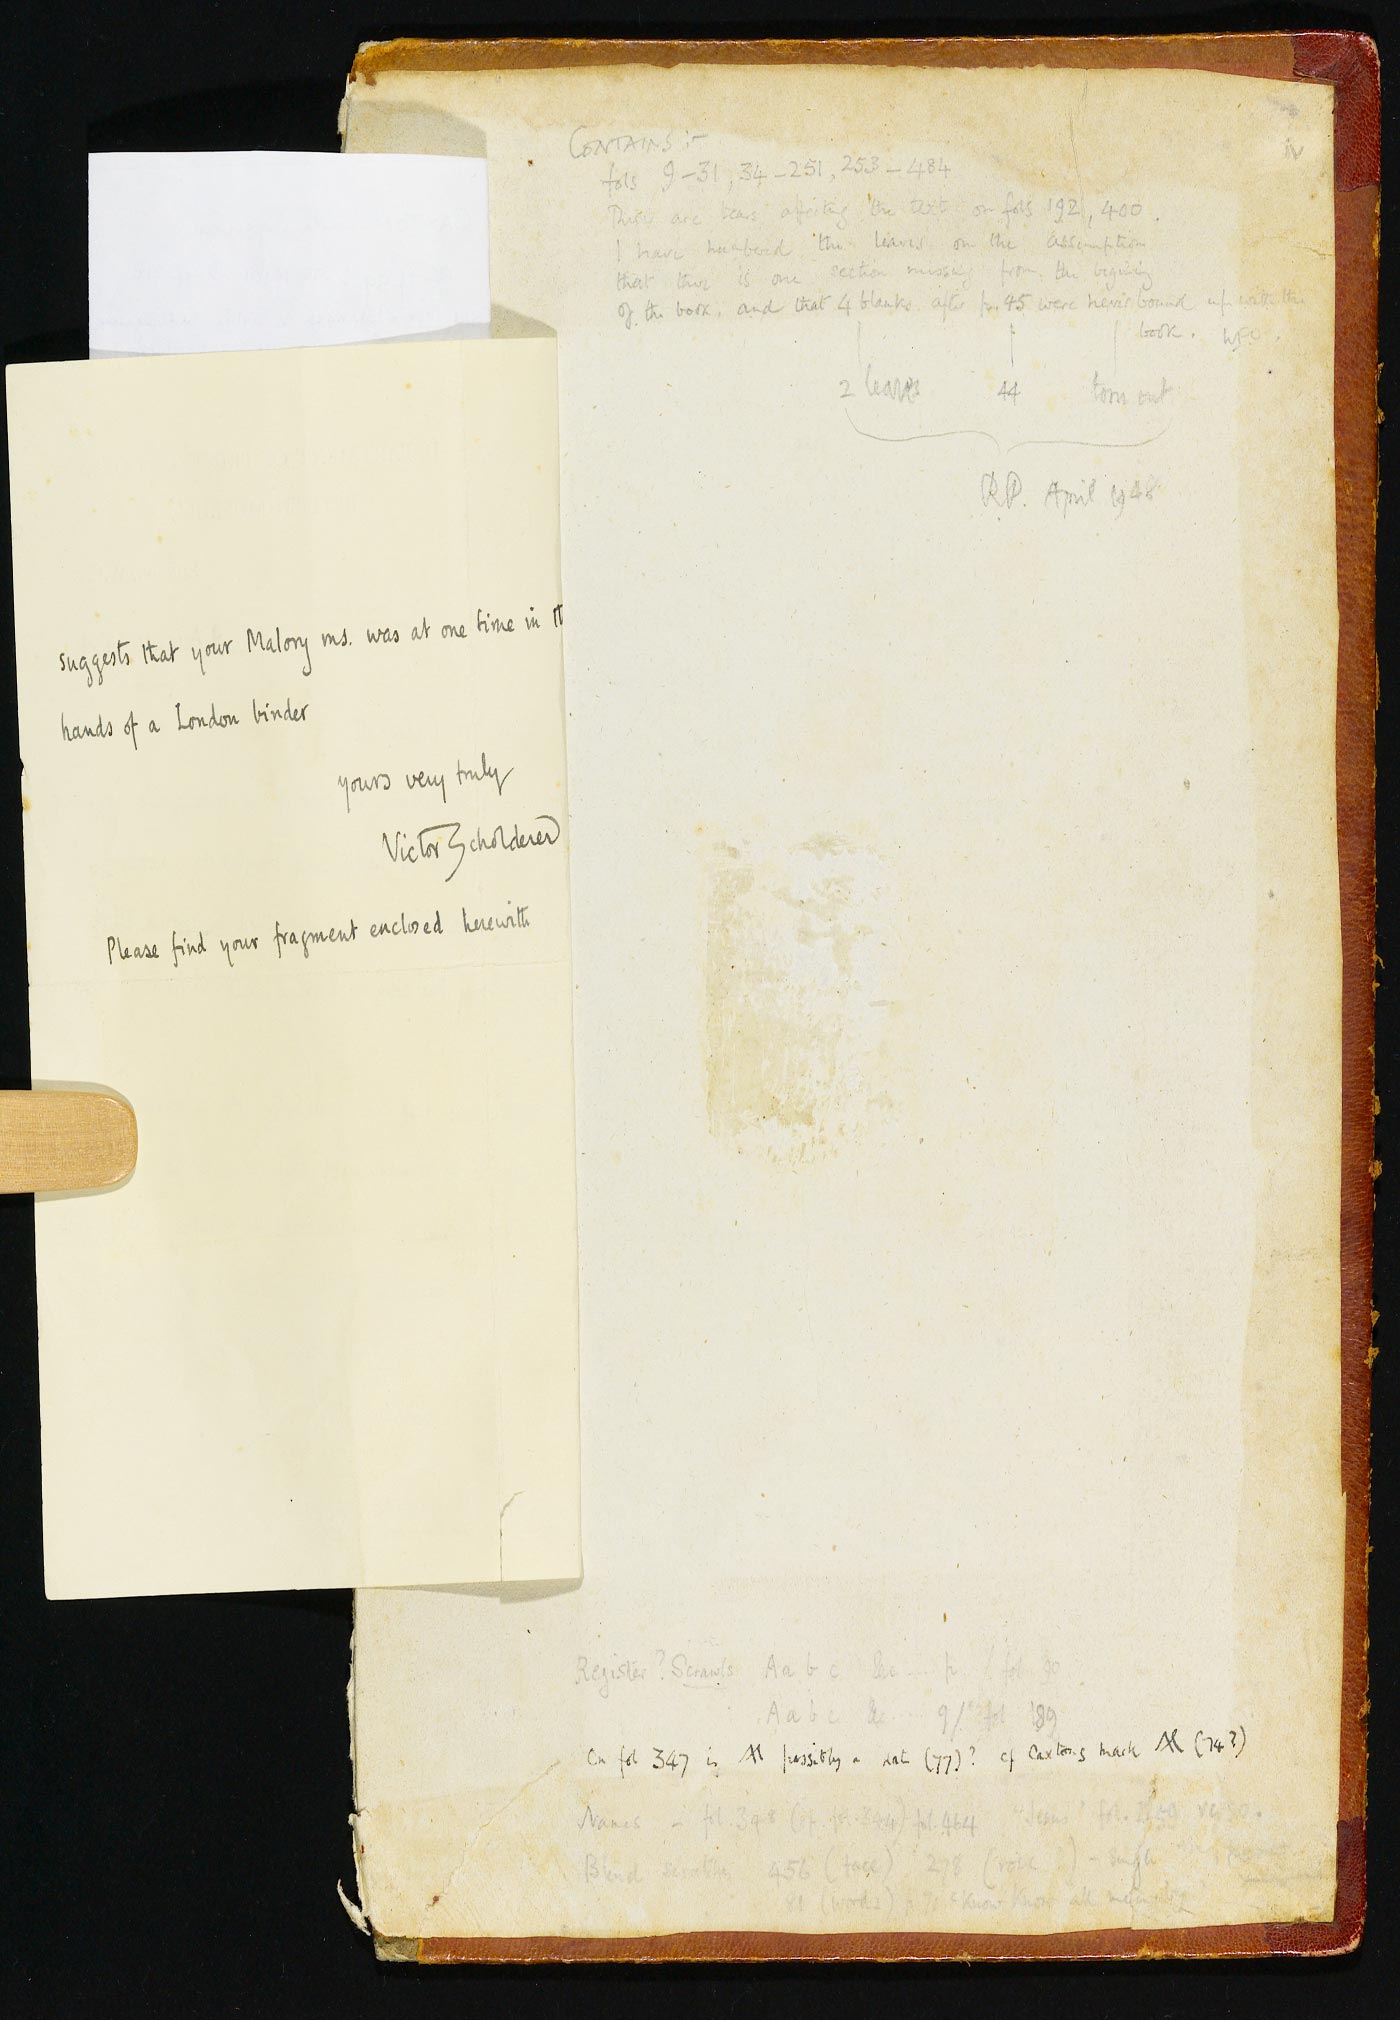 suggests that your Malory ms. was at one time in th
hands of a London binder
yours very truly
Victor Scholderer
Please find your fragment enclosed herewith
iv
CONTAINS :-
fols 9-31, 34-251, 253-484
There are tears affecting the text on fols 192, 400.
I have numbered the leaves on the assumption
that there is one section missing from the beginning
of the book, and that 4 blanks after p. 45 were never bound up with the
book. WFO.
2 leaves 44 torn out
RP. April 1948
Register? Scrawls A a b c &c ... p / fol
A a b c &c ... 9 / fol 189
On fol 347 is possibly a date (77)? cf Caxtons mark (74?)
Names - fol. 398 fol. 464 "Jesus" verso.
Blind scratches 456 (face) 278
(words) "Know Know all men by